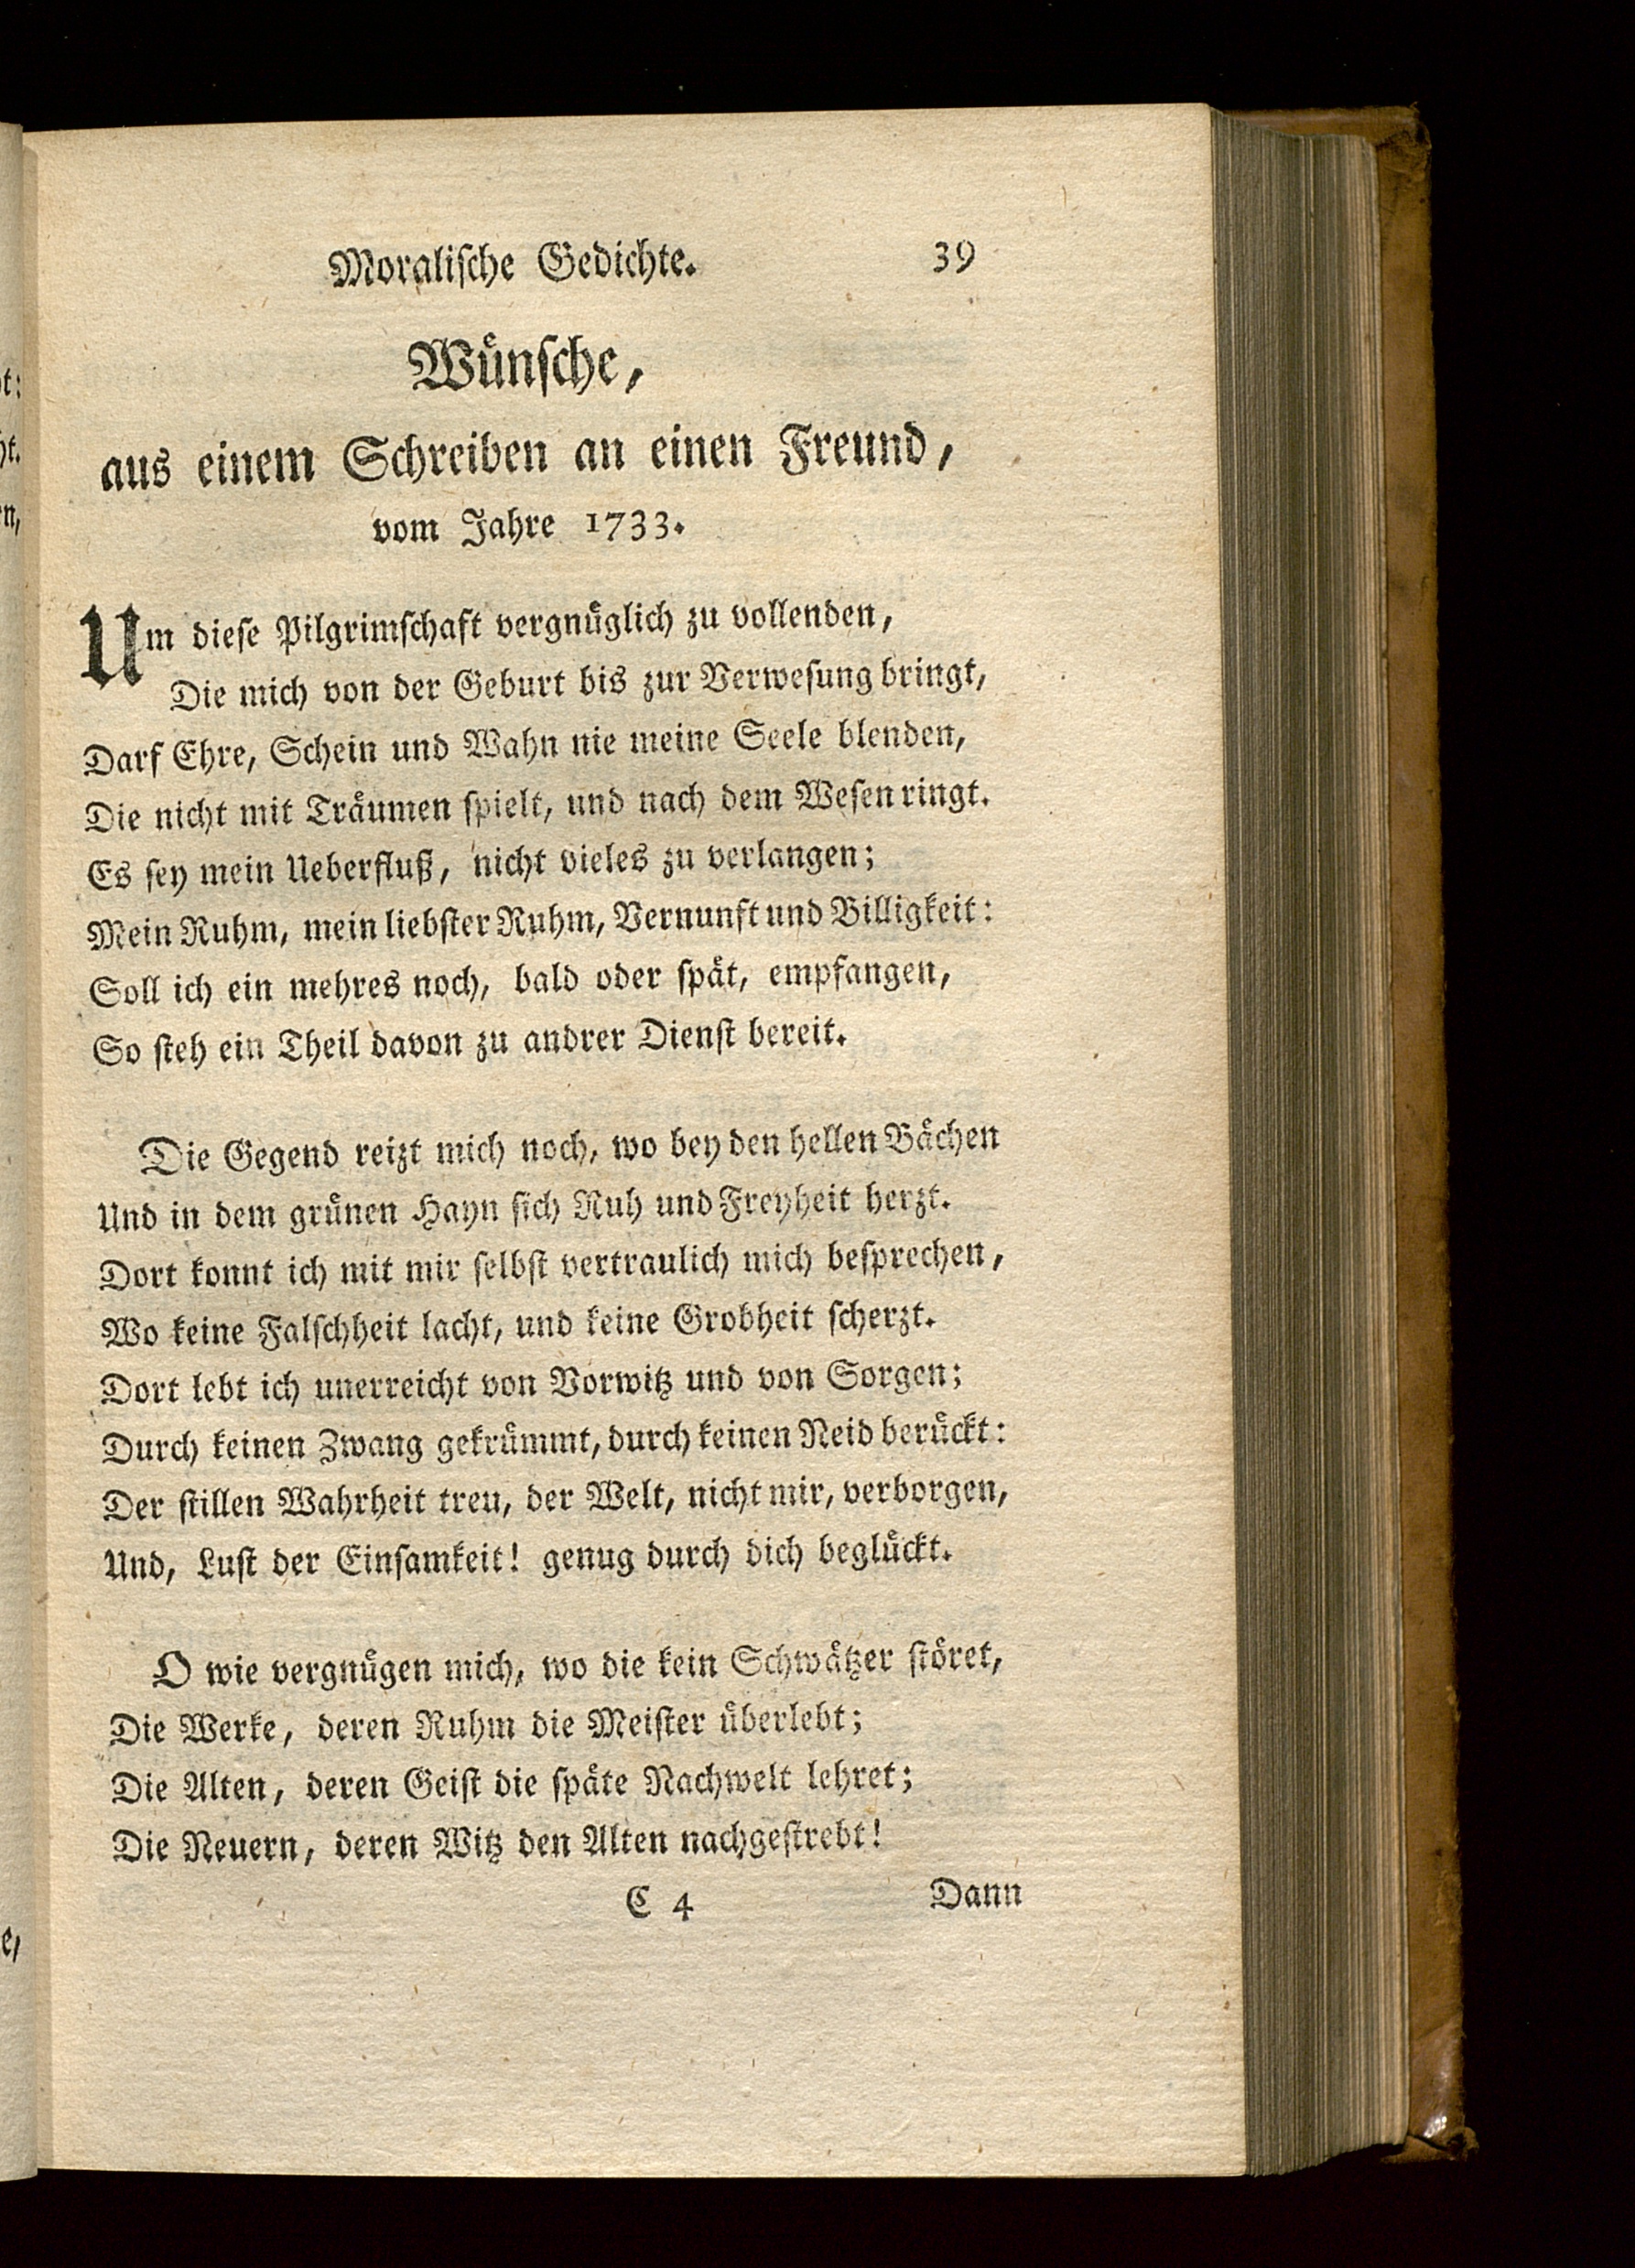 Moralische Gedichte. 39
Wünsche,
aus einem Schreiben an einen Freund,
vom Jahre 1733.
Um diese Pilgrimschaft vergnüglich zu vollenden,
Die mich von der Geburt bis zur Verwesung bringt,
Darf Ehre, Schein und Wahn nie meine Seele blenden,
Die nicht mit Träumen spielt, und nach dem Wesen ringt.
Es sey mein Ueberfluß, nicht vieles zu verlangen;
Mein Ruhm, mein liebster Ruhm, Vernunft und Billigkeit:
Soll ich ein mehres noch, bald oder spät, empfangen,
So steh ein Theil davon zu andrer Dienst bereit.
Die Gegend reizt mich noch, wo bey den hellen Bächen
Und in dem grünen Hayn sich Ruh und Freyheit herzt.
Dort konnt ich mit mir selbst vertraulich mich besprechen,
Wo keine Falschheit lacht, und keine Grobheit scherzt.
Dort lebt ich unerreicht von Vorwitz und von Sorgen;
Durch keinen Zwang gekrümmt, durch keinen Neid berückt:
Der stillen Wahrheit treu, der Welt, nicht mir, verborgen,
Und, Lust der Einsamkeit! genug durch dich beglückt.
O wie vergnügen mich, wo die kein Schwätzer störet,
Die Werke, deren Ruhm die Meister überlebt;
Die Alten, deren Geist die späte Nachwelt lehret;
Die Neuern, deren Witz den Alten nachgestrebt!
C 4 Dann